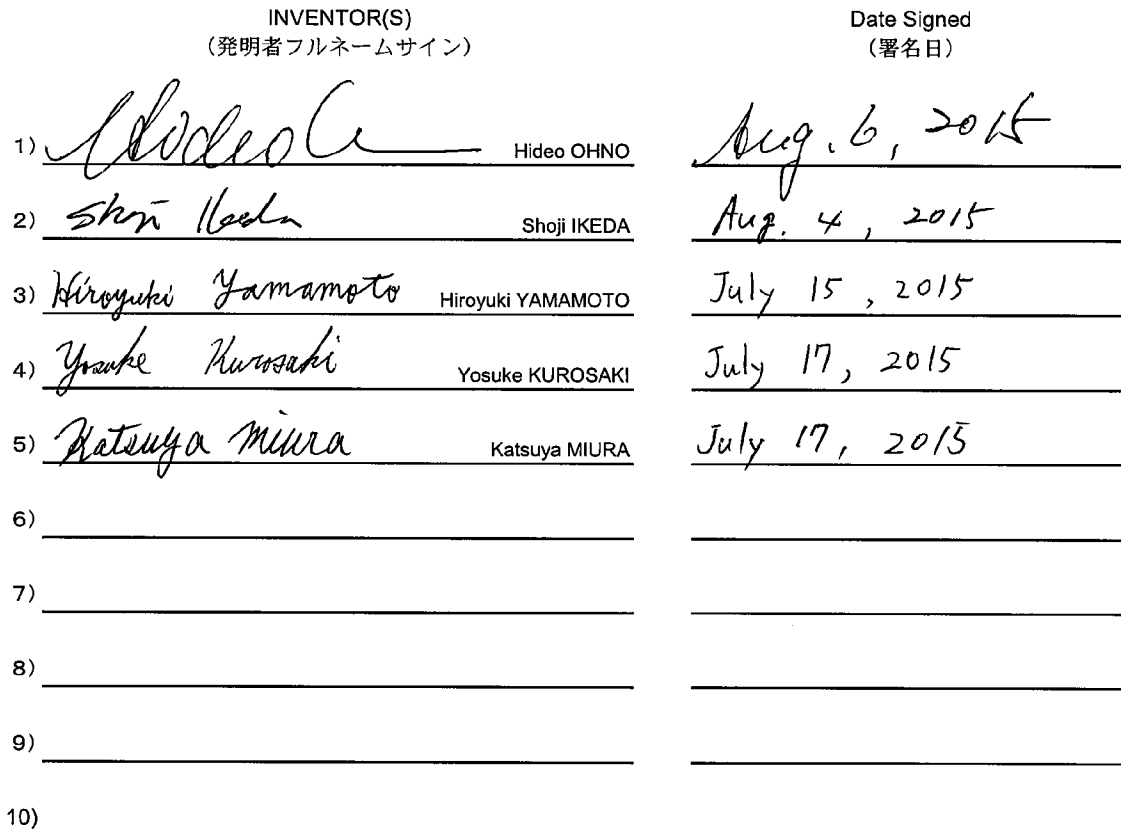 INVENTOR(S) Date Signed
(発明者フルネームサイン) (署名日)
1) Hideo Hideo OHNO Aug. 6, 2015
2) Shoji Ikeda Shoji IKEDA Aug. 4, 2015
3) Hiroyuki Yamamoto Hiroyuki YAMAMOTO July 15, 2015
4) Yosuke Kurosaki Yosuke KUROSAKI July 17, 2015
5) Katsuya Miura Katsuya MIURA July 17, 2015
6)
7)
8)
9)
10)